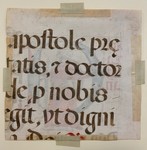 apostole prę
tatis, ⁊ doctor
de, p nobis
egit, vt digni